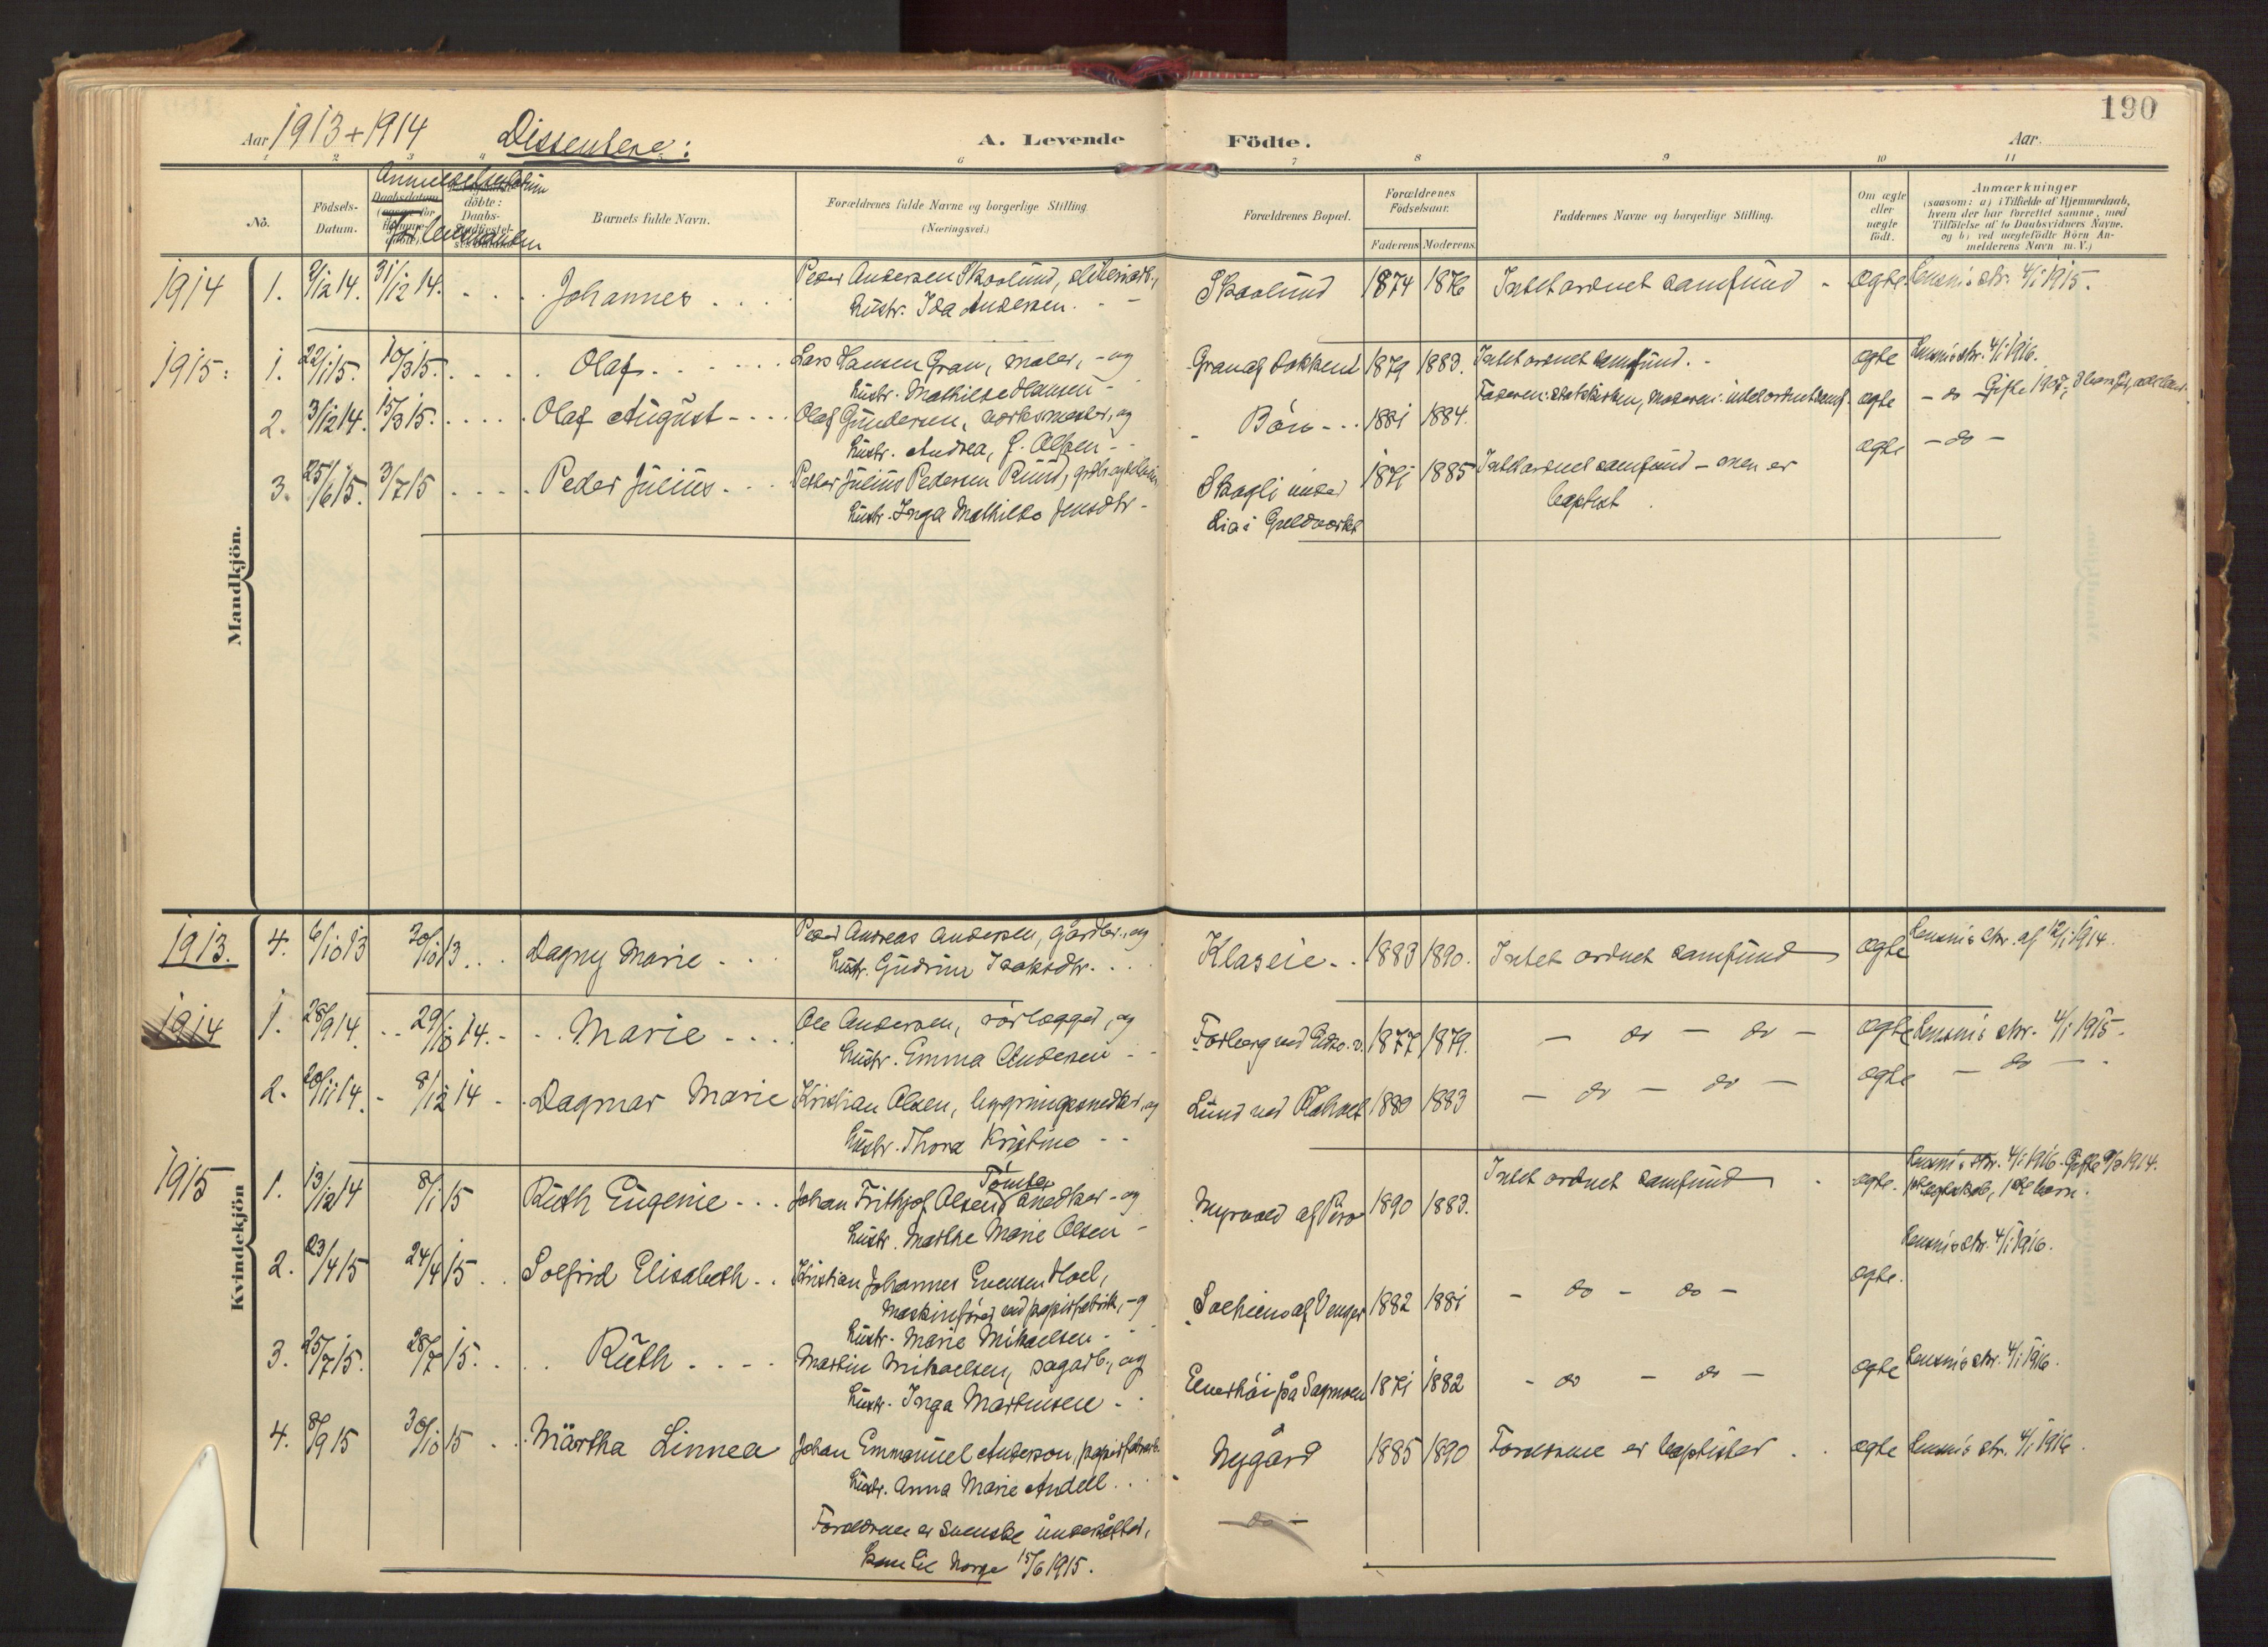 190
Aar 1913+1914 Dissentere: A. Levende Födte. Aar.
1 2 3 4 6 7 8 9 10 11
Anmeldelsesdatum
for lensmanden
No. Födsels-Datum. Daabsdatum Barnets fulde Navn. Forældrenes fulde Navne og borgerlige Stilling (Næringsvei.) Forældrenes Bopæl. Forældrenes Födselsaar. Faderens Moderens Faddernes Navne og borgerlige Stilling. Om ægte eller uægte födt. Anmærkninger
(saasom: a) i Tilfælde af Hjemmedaab,
hvem der har forrettet samme, med
Tilföielse af to Daabsvidners Navne.
og b) ved uægtefödte Börn An-
melderens Navn m. V.)
Mandkjön.
1914 1. 9/12 14. 31/12 14. Johannes Peder Andersen Skovlund, sliberiarb., Skovlund 1874 1876 Intet ordnet samfund - ægte Lensm's skr. 4/1 1915.
hustr. Ida Andersen.
1915: 1. 22/1 15. 10/3 15. Olaf Lars Hansen Gran, maler, - og Gran af Bakkend 1879 1883. Intet ordnet samfund. - ægte Lensm's skr. 4/1 1916.
hustr. Mathilde Hansen -
2. 3/12 14. 15/3 15. Olaf August Olaf Gundersen, værksmester, og Bön 1881 1884. Faderen: statskirken, Moderen: intet ordnet samf. ægte - do - Gifte 1907,
hustr. Andrea, f. Olsen -
3. 25/6 15. 3/7 15 Peder Julius Petter Julius Pedersen Rund, Skogli under 1871 1885 Intet ordnet samfund - men er ægte - do -
hustr. Inga Mathilde Jensdtr - Lia i Guldverket baptist
Kvindekjön
1913. 4. 6/10 13 20/10 13 Dagny Marie Peder Andreas Andersen, gårdbr., og Klaseie 1883 1890. Intet ordnet samfund ægte Lensm's skr. af 12/1 1914.
hustr. Gudrun Isaksdtr.
1914 1. 28/9 14. 29/10 14. Marie Ole Andersen, rörlægger, og Forberg ved Eidsv. v. 1877 1879. - do - do - ægte Lensm's skr. 4/1 1915.
hustr. Emma Andersen -
2. 20/11 14. 8/12 14 Dagmar Marie Kristian Olsen, bygningssnedker, og Lund ved Råholt 1880 1883 - do - do - ægte - do -
hustr. Thora Kristine
1915 1. 13/12 14 8/1 15 Ruth Eugenie Johan Frithjof Olsen Tömte snedker - og Myrvold af Pero 1890 1883. Intet ordnet samfund ægte. Lensm's skr. 4/1 1916. Gifte 9/3 1914.
hustr. Marthe Marie Olsen - 1ste ægteskab, 1ste barn.
2. 23/4 15 24/4 15 Solfrid Elisabeth Kristian Johannes Evensen Hoel, Solheim af Venger 1882 1881 - do - do - ægte. Lensm's skr. 4/1 1916.
Maskinförer ved papirfabrik, - og
hustr. Marie Mikaelsen -
3. 25/7 15. 28/7 15. Ruth Martin Mikaelsen, sagarb., og Enerhöi på Sagmoen 1871 1882 - do - do - ægte Lensm's skr. 4/1 1916.
hustr. Inga Martinsen -
4. 8/9 15 30/10 15 Märtha Linnea Johan Emmanuel Anderson, papirfabrarb. Nygård 1885 1890 Forældrene er baptister ægte Lensm's skr. 4/1 1916.
hustr. Anna Marie Andell
Forældrene er svenske undersåtter, - do -
kom til Norge 15/6 1915.